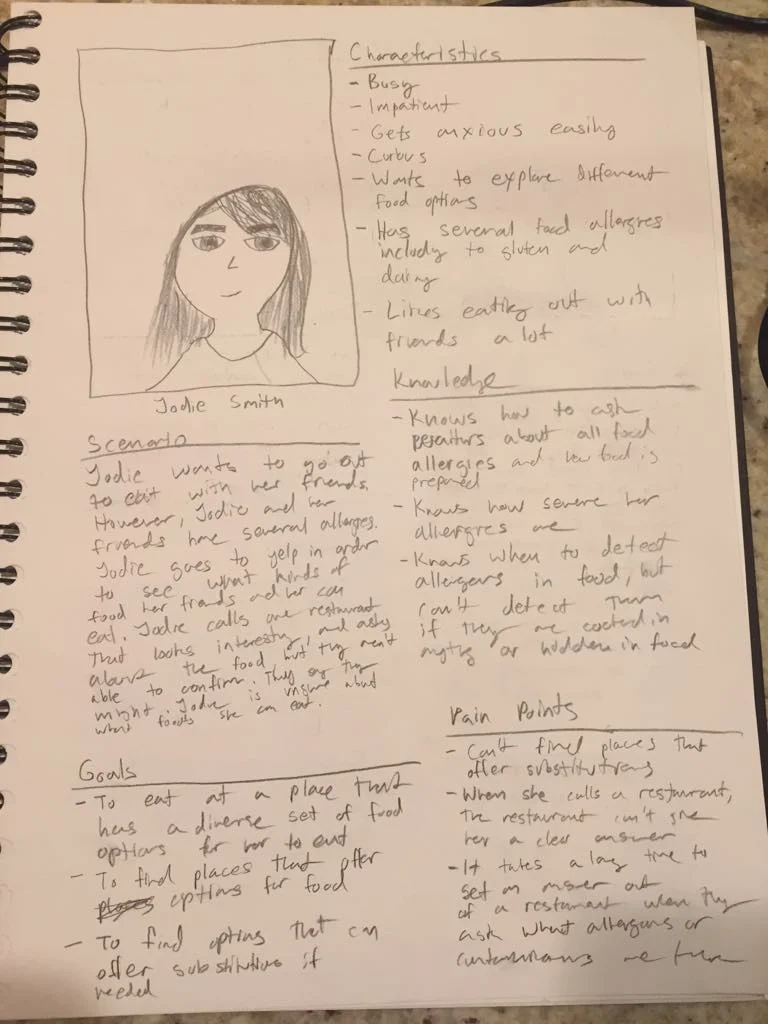 Jodie Smith
Characteristics
- Busy
- Impatient
- Gets anxious easily
- Curious
- Wants to explore different
food options
- Has several food allergies
to gluten and
dairy
- Likes eating out with
friends a lot
Knowledge
- Knows how to ask
about all food
allergies and how food is
prepared
- Knows how severe her
allergies are
- Knows when to detect
allergens in food, but
can't detect them
if they are coated in
or hidden in food
Scenario
Jodie wants to go out
to eat with her friends.
However, Jodie and her
friends have several allergies.
Jodie goes to yelp in order
to see what kinds of
food her friends and her can
eat. Jodie calls one restaurant
that looks interesting, and asks
about the food, but they aren't
able to confirm. They say they
might. Jodie is unsure about
what foods she can eat.
Goals
- To eat at a place that
has a diverse set of food
options for her to eat
- To find places that offer
options for food
- To find options that can
offer substitutions if
needed
Pain Points
- Can't find places that
offer substitutions
- When she calls a restaurant,
the restaurant can't give
her a clear answer
- It takes a long time to
get an answer out
of a restaurant when they
ask what allergens or
are there